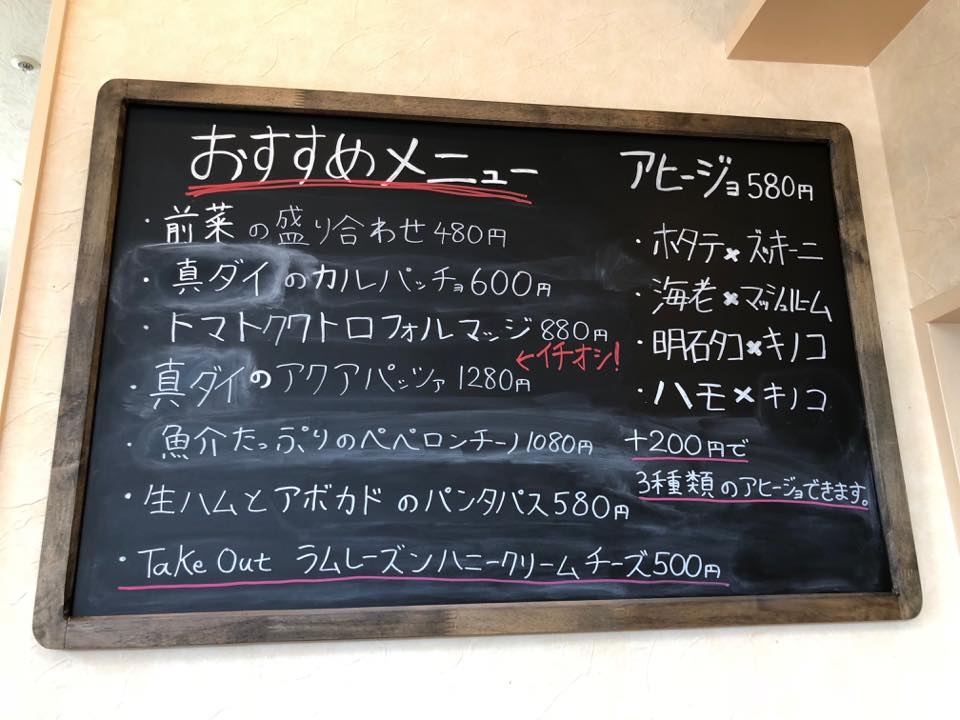 おすすめメニュー
・前菜の盛り合わせ480円
・真ダイのカルパッチョ600円
・トマトクワトロフォルマッジ880円
←イチオシ!
・真ダイのアクアパッツァ1280円
・魚介たっぷりのペペロンチーノ1080円
・生ハムとアボカドのパンタパス580円
・Take Out ラムレーズンハニークリームチーズ500円
アヒージョ580円
・ホタテ×ズッキーニ
・海老×マッシュルーム
・明石タコ×キノコ
・ハモ×キノコ
+200円で
3種類のアヒージョできます。